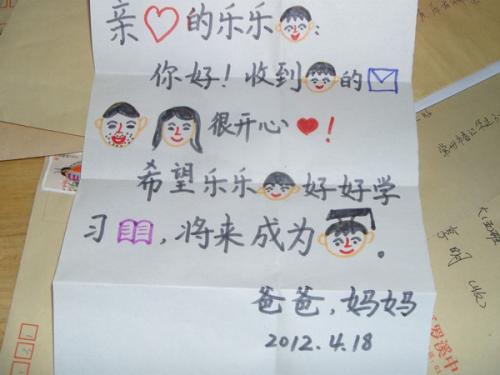 亲的乐乐:
你好!收到的
很开心!
希望乐乐好好学
习,将来成为.
爸爸,妈妈
2012.4.18